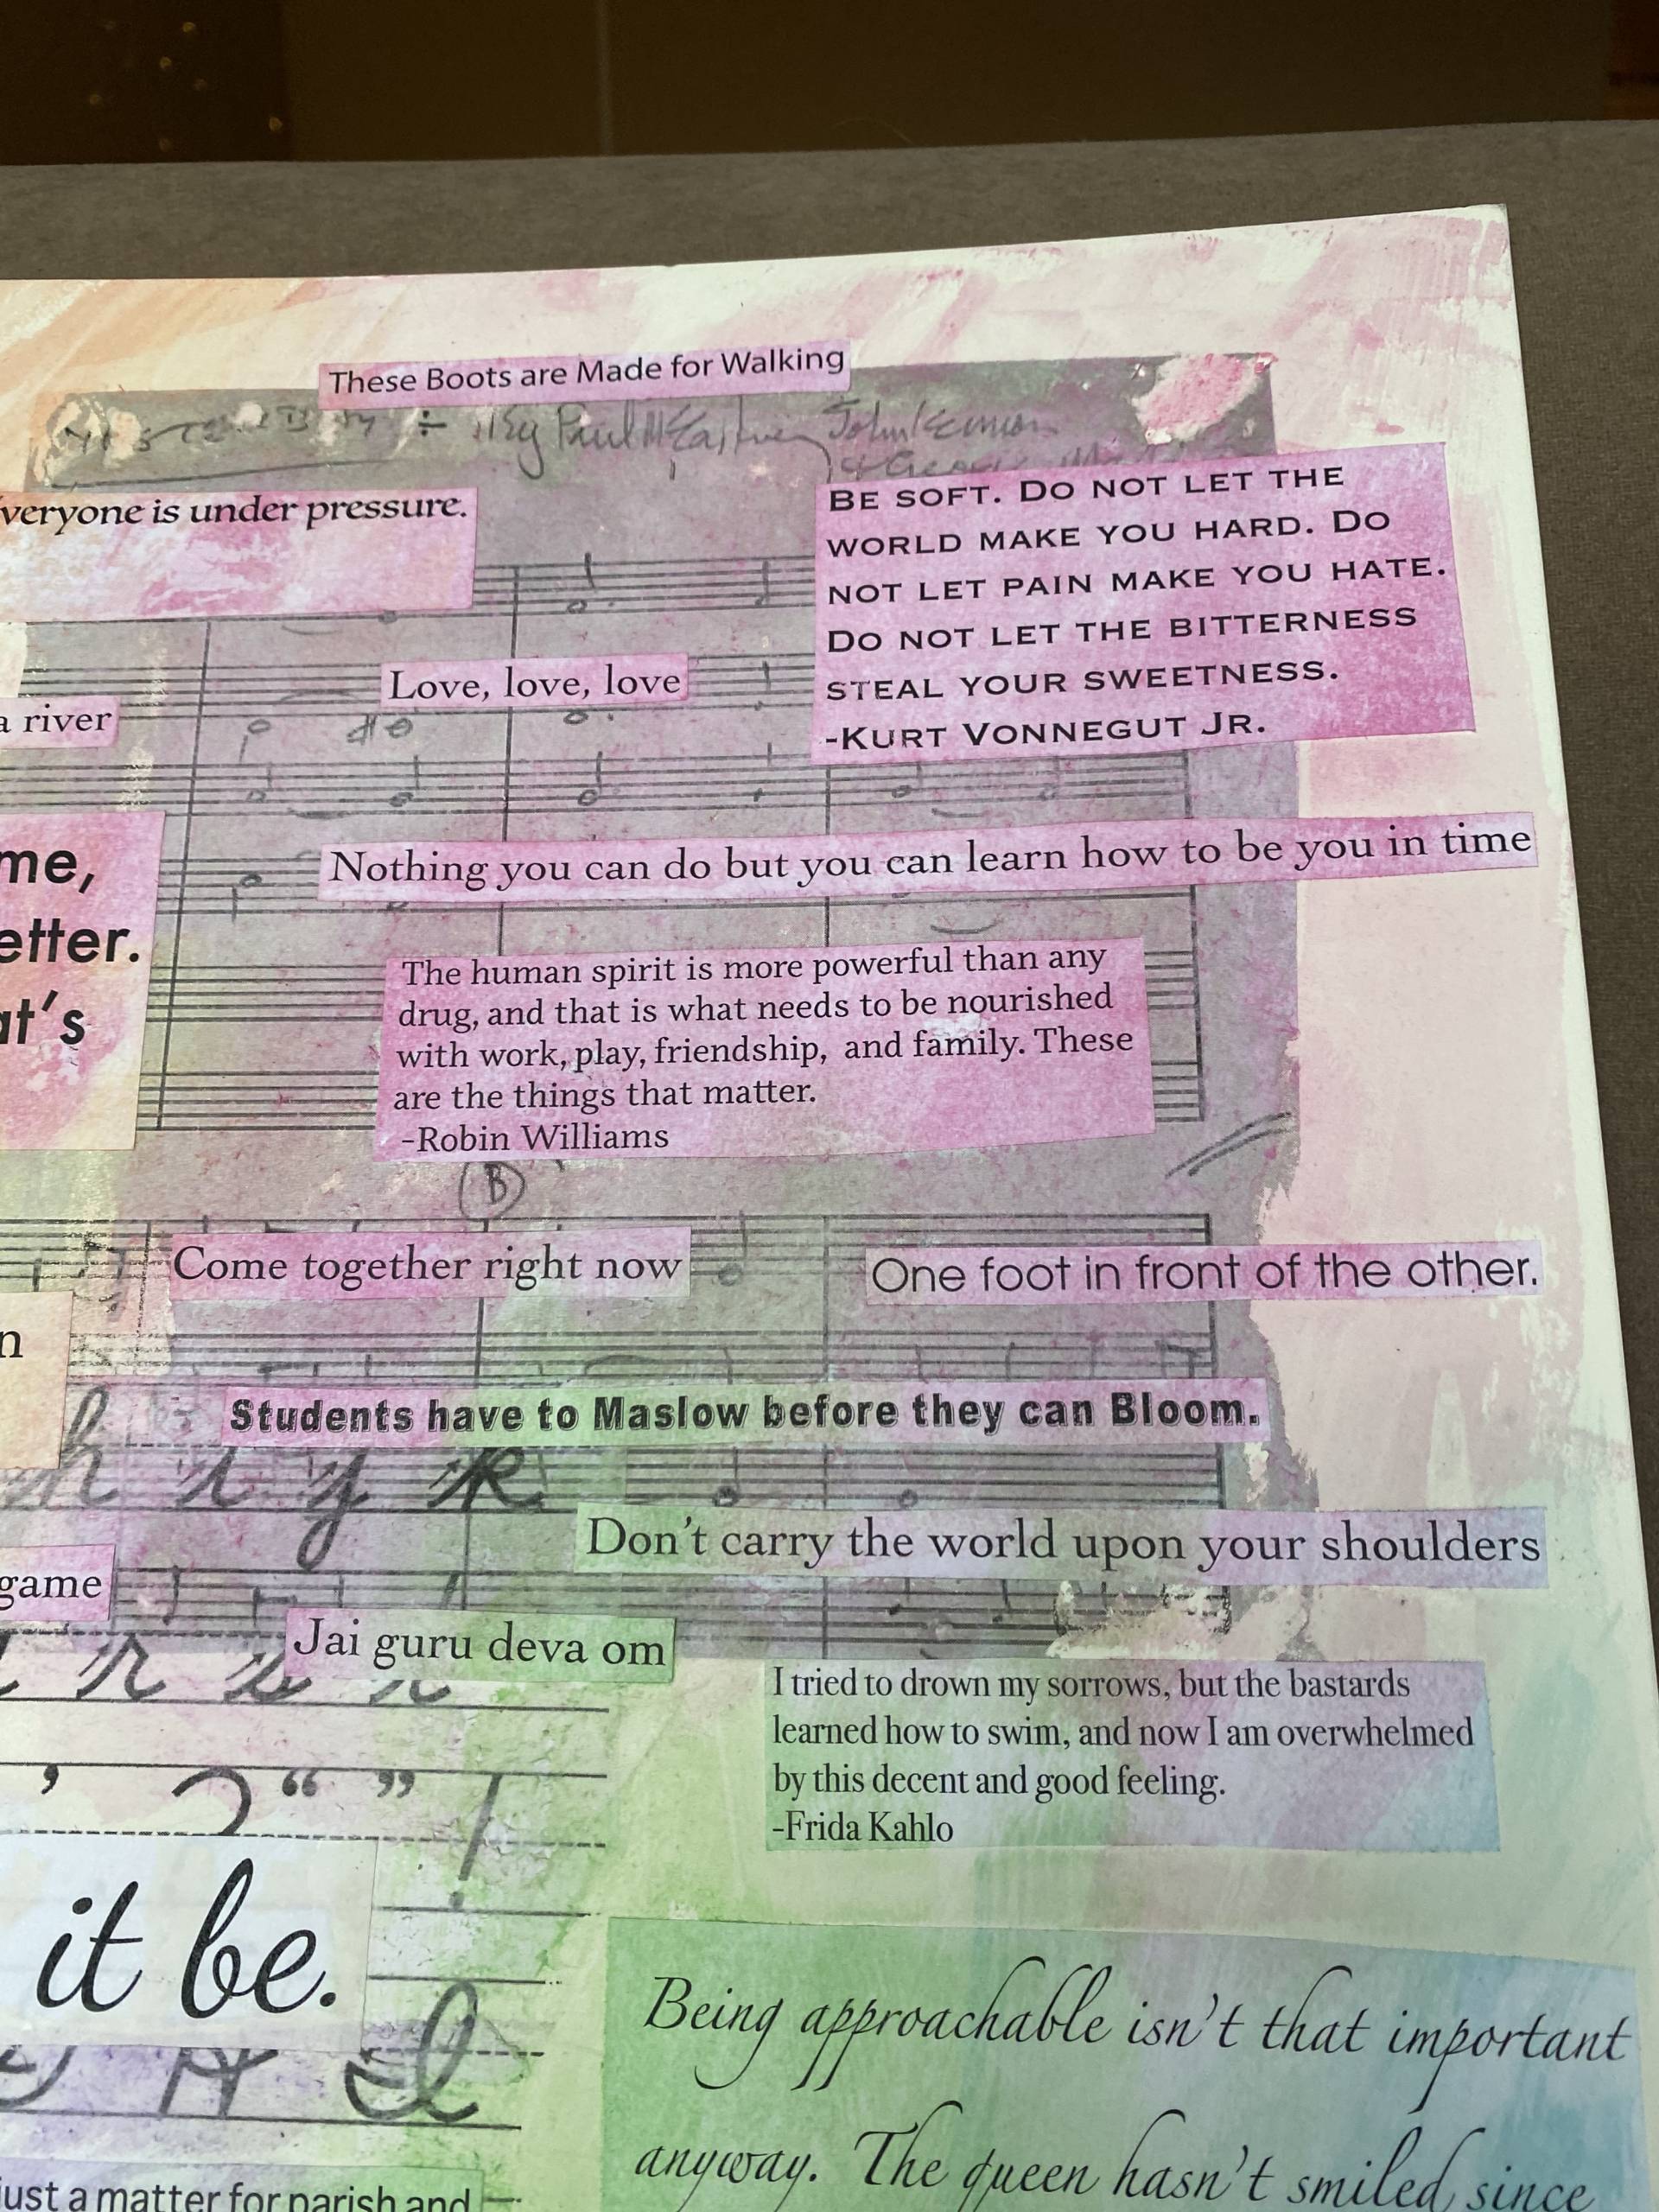 These Boots are Made for Walking
By Paul McCartney John Lennon
veryone is under pressure.
BE SOFT. DO NOT LET THE
WORLD MAKE YOU HARD. DO
NOT LET PAIN MAKE YOU HATE.
DO NOT LET THE BITTERNESS
STEAL YOUR SWEETNESS.
-KURT VONNEGUT JR.
Love, love, love
a river
me,
etter.
at's
Nothing you can do but you can learn how to be you in time
The human spirit is more powerful than any
drug, and that is what needs to be nourished
with work, play, friendship, and family. These
are the things that matter.
-Robin Williams
B
Come together right now
One foot in front of the other.
n
Students have to Maslow before they can Bloom.
Don't carry the world upon your shoulders
game
Jai guru deva om
I tried to drown my sorrows, but the bastards
learned how to swim, and now I am overwhelmed
by this decent and good feeling.
-Frida Kahlo
it be.
Being approachable isn't that important
anyway. The queen hasn't smiled since
just a matter for parish and